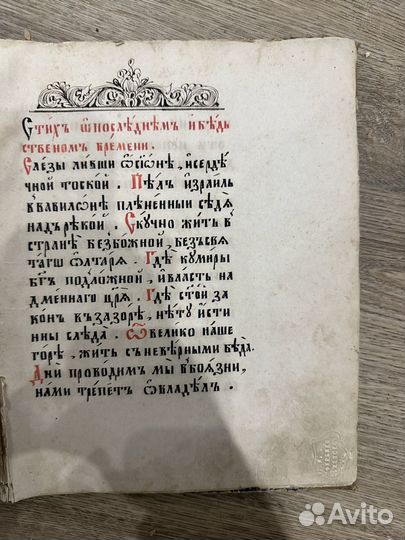 Стихъ ѿпослѣднемъ и бѣдь
ственомъ времени.
Слезы ливши ѿсиѡнѣ, исерде
чной тоской. Пѣлъ израиль
ввавилѡнѣ плѣненный сѣдѧ
надъ рѣкой. Скучно жить в
странѣ безбожной, безъсвѧ
тагѡ ѿлтарѧ. Гдѣ кумиры
бг҃ъ подложной, ивласть на
дменнаго цр҃ѧ. Гдѣ стой за
конъ въ зазорѣ, нѣту йсти
ины слѣда. Ѽвелико наше
горѣ, жить съневѣрными бѣда.
Дни проводимъ мы в боѧзни,
нами трепетъ ѡвладѣлъ.
Avito